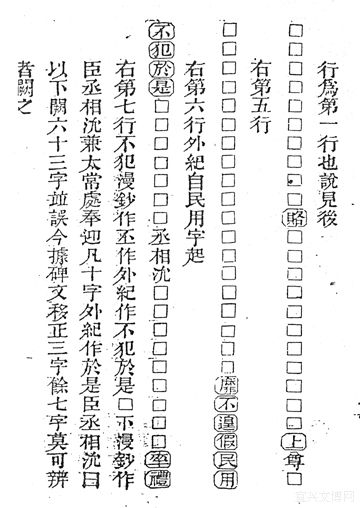 行爲第一行也說見後
□□□□□□□□□□略□□□□□□□□□□上尊□
右第五行
□□□□□□□□□□□□□□□□□□靡不遑假民用
右第六行外紀自民用字起
不犯於是□□□□□□□丞相沈□□□□□□□□率禮
右第七行不犯漫鈔作丕作外紀作不犯於是□下漫鈔作
臣丞相沈兼太常處奉迎凡十字外紀作於是臣丞相沈曰
以下闕六十三字並誤今據碑文移正三字餘七字莫可辨
者闕之
宜兴文博网